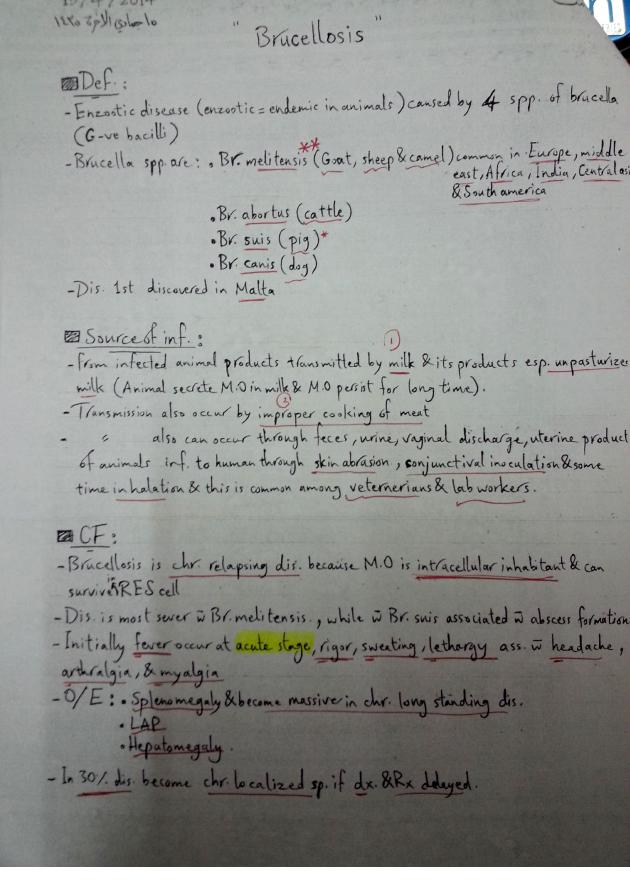 15/4/2014
١٥ جمادي الآخرة ١٤٣٥
"Brucellosis"
Def.:
- Enzootic disease (enzootic = endemic in animals) caused by 4 spp. of brucella
(G-ve bacilli)
- Brucella spp. are: • Br. melitensis ** (Goat, sheep & camel) common in Europe, middle
east, Africa, India, Central as
& South america
• Br. abortus (cattle)
• Br. suis (pig)*
• Br. canis (dog)
- Dis. 1st discovered in Malta
Source of inf.:
- from infected animal products transmitted by ① milk & its products esp. unpasturize
milk (Animal secrete M.O in milk & M.O persist for long time).
- Transmission also occur by ② improper cooking of meat
- " also can occur through feces, urine, vaginal discharge, uterine product
of animals inf. to human through skin abrasion, conjunctival inoculation & some
time inhalation & this is common among veternerians & lab workers.
CF:
- Brucellosis is chr. relapsing dis. because M.O is intracellular inhabitant & can
survive in RES cell
- Dis. is most sever w̄ Br. melitensis., while w̄ Br. suis associated w̄ abscess formation
- Initially fever occur at acute stage, rigor, sweating, lethargy ass. w̄ headache,
arthralgia, & myalgia
- O/E: • Splenomegaly & become massive in chr. long standing dis.
• LAP
• Hepatomegaly.
- In 30% dis. become chr. localized sp. if dx. & Rx delayed.